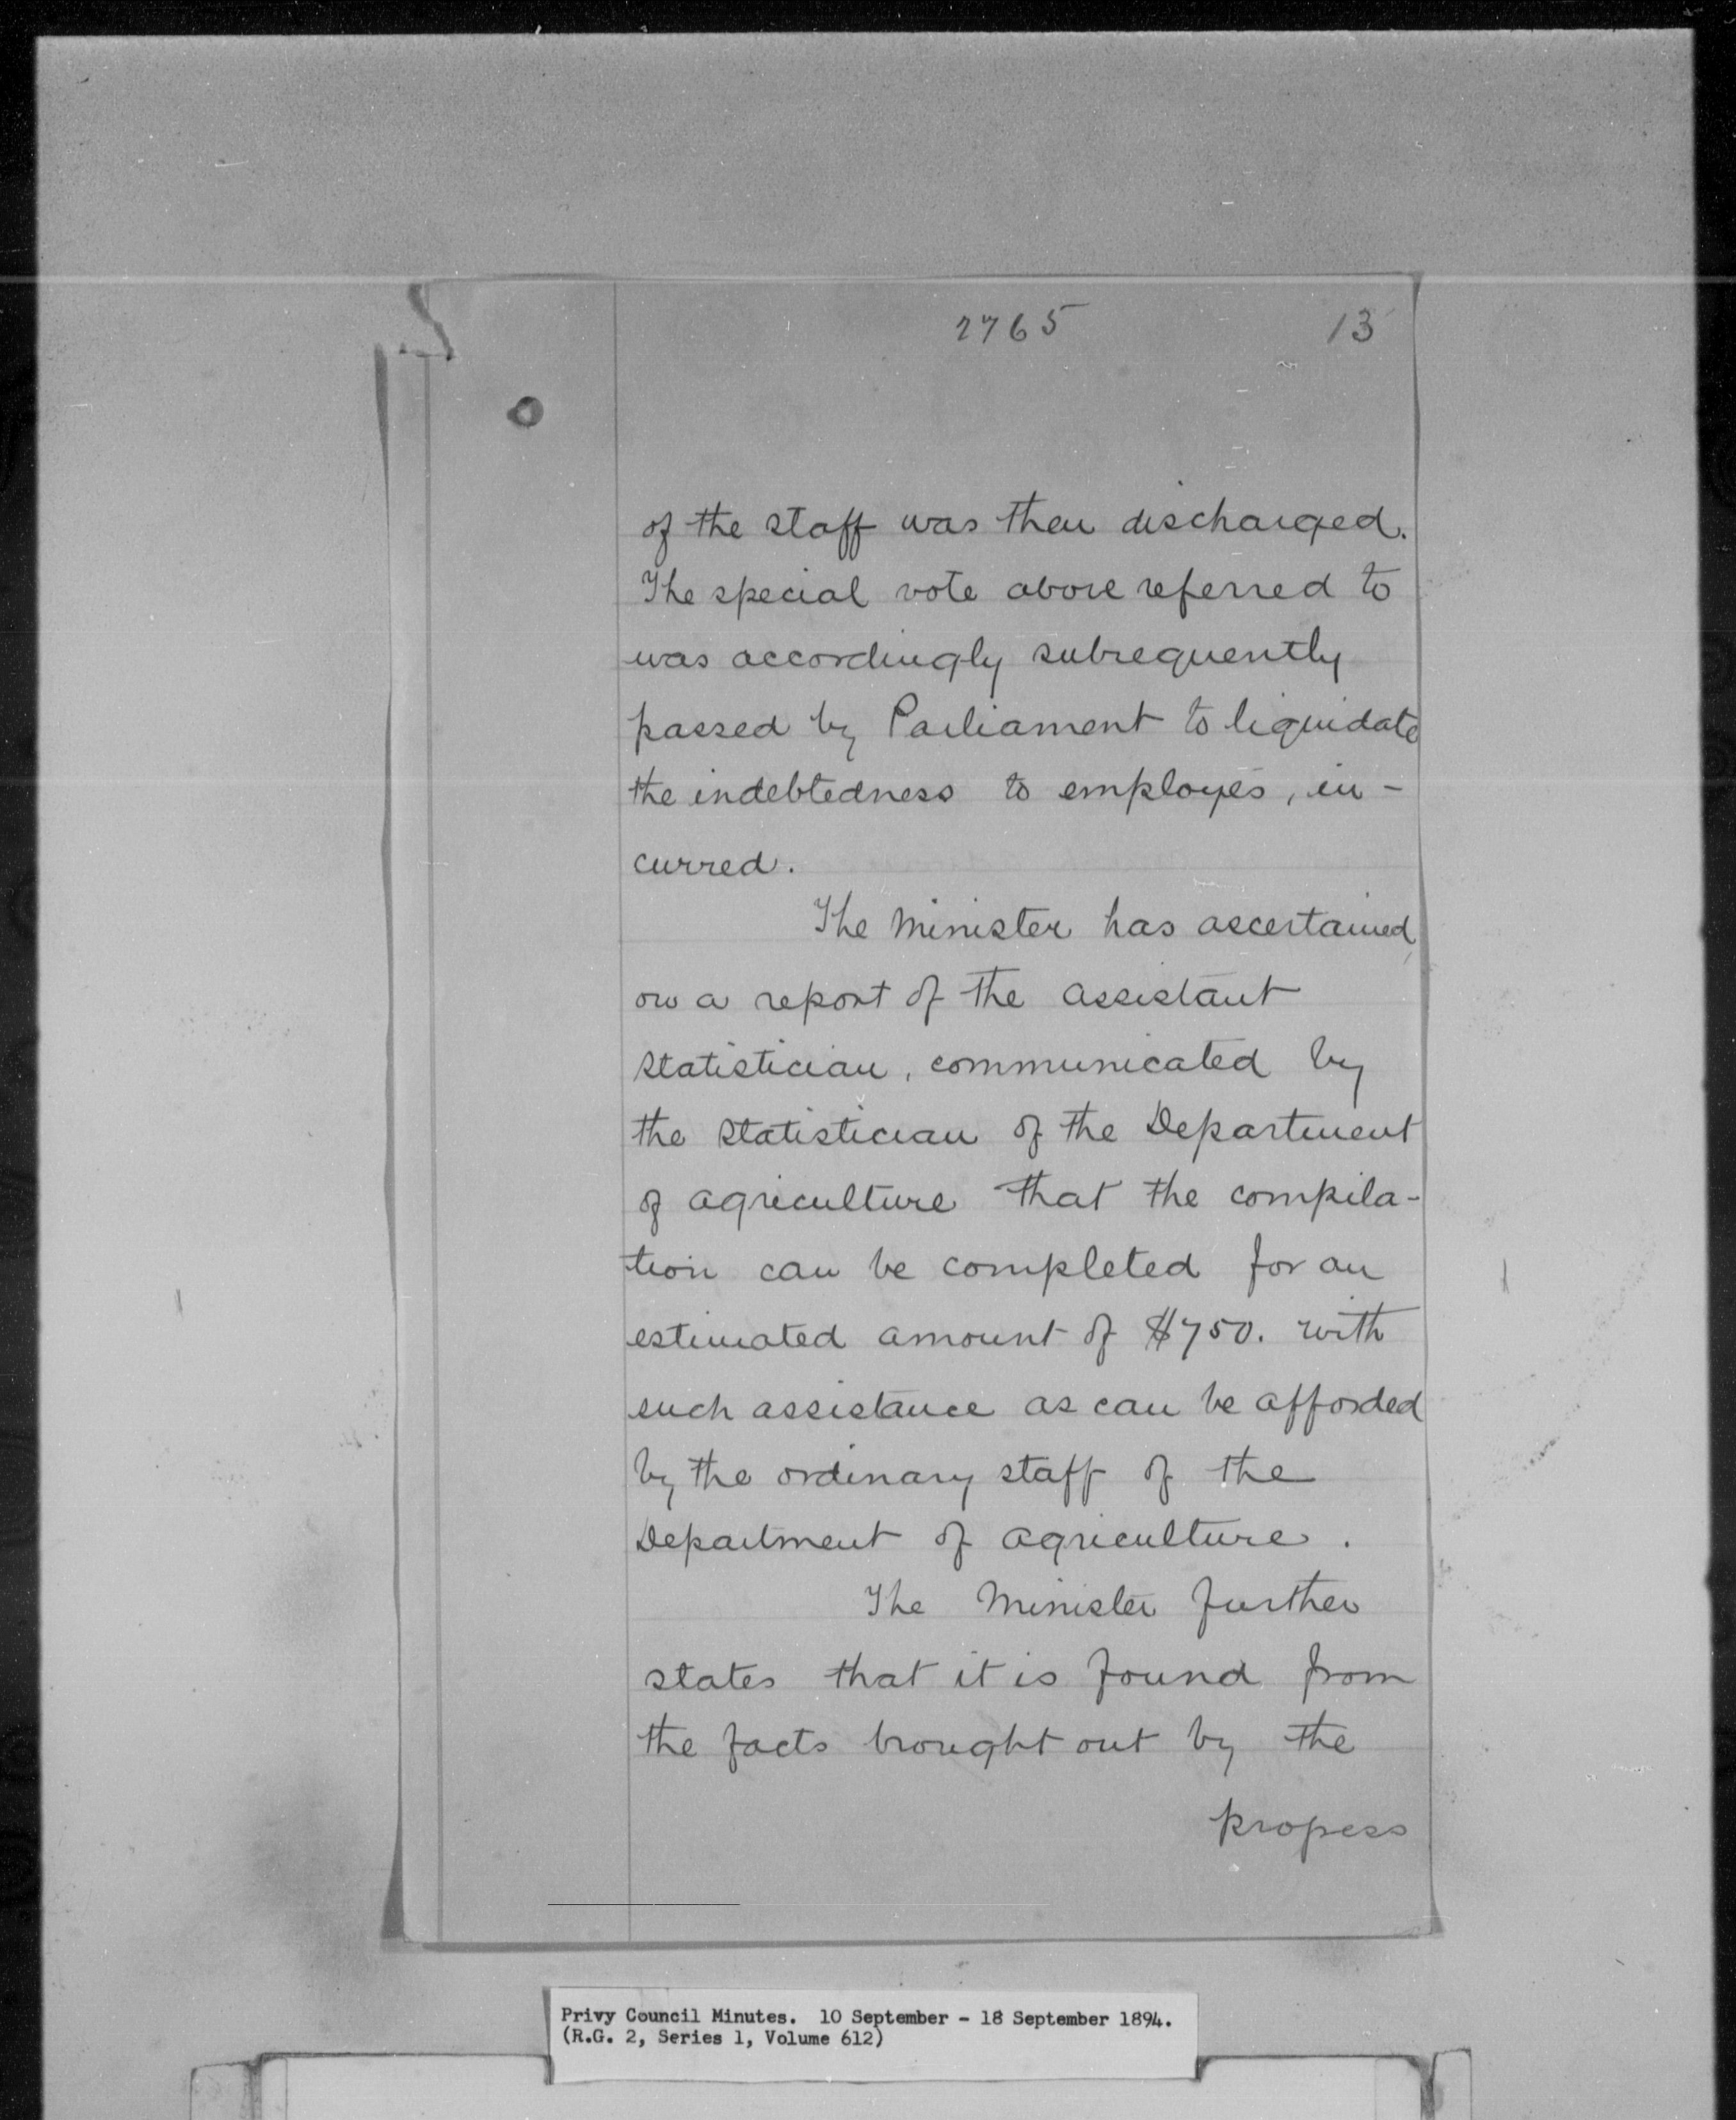 2765 13
of the staff was then discharged.
The special vote above referred to
was accordingly subsequently
passed by Parliament to liquidate
the indebtedness to employés, in-
curred.
The Minister has ascertained
on a report of the assistant
statistician, communicated by
the statistician of the Department
of agriculture that the compila-
tion can be completed for an
estimated amount of $750. with
such assistance as can be afforded
by the ordinary staff of the
Department of agriculture.
The Minister further
states that it is found from
the facts brought out by the
progress
Privy Council Minutes. 10 September - 18 September 1894.
(R.G. 2, Series 1, Volume 612)